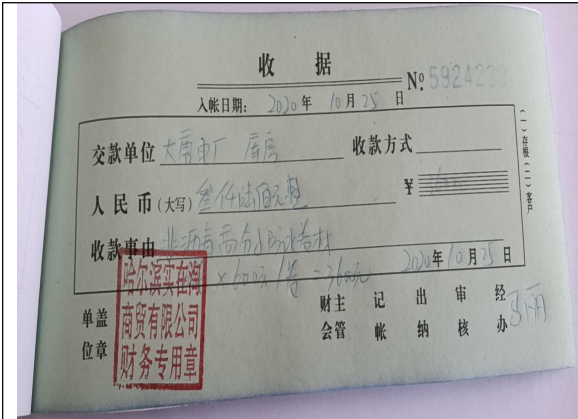 收据
No 5924230
入帐日期： 2020年 10月 25日
交款单位 大唐电厂 库房 收款方式
人民币（大写） 叁仟陆佰元整 ￥
收款事由 非沥青高分子防水卷材
×600元/卷=3600元 2020年10月25日
哈尔滨买在淘
商贸有限公司
财务专用章
单位盖章 财会主管 记帐 出纳 审核 经办
（一）存根（二）客户